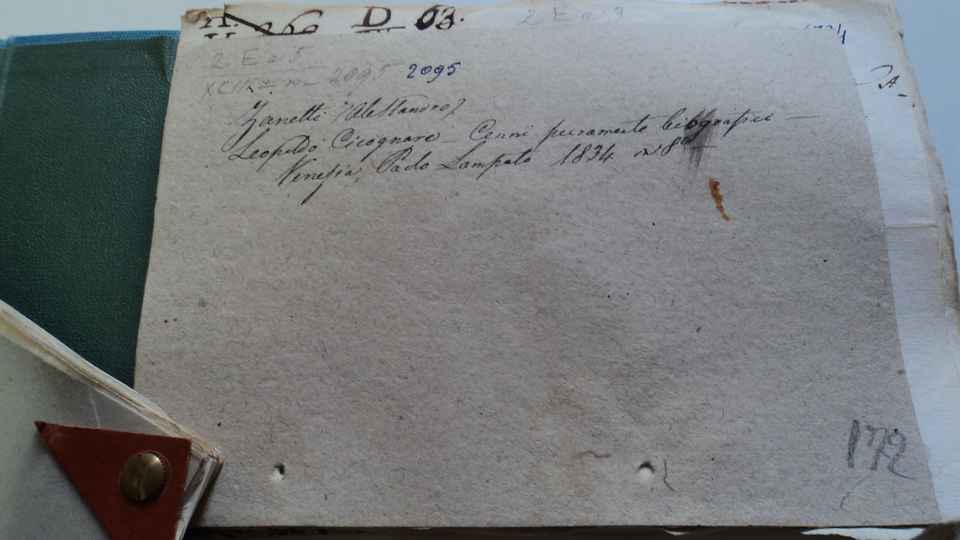 D 63.
2 E a 9
2 E a 5
2095 2095
Zanetti (Alessandro)
Leopoldo Cicognara - Cenni puramente biografici -
Venezia, Paolo Lampato 1834 in 8º
A.
172